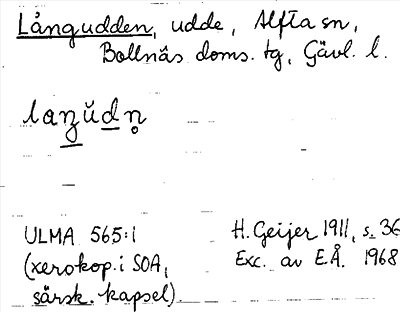 Långudden, udde, Alfta sn,
Bollnäs doms. tg, Gävl. l.
laŋŭdn̥
ULMA 565:1
(xerokop. i SOA,
särsk. kapsel)
H. Geijer 1911, s. 36
Exc. av E.Å. 1968